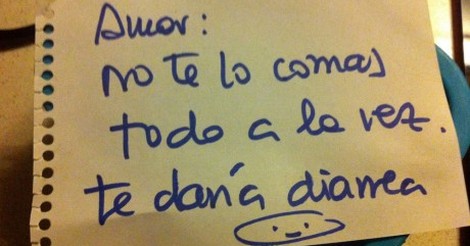 Amor:
no te lo comas
todo a la vez.
te daría diarrea